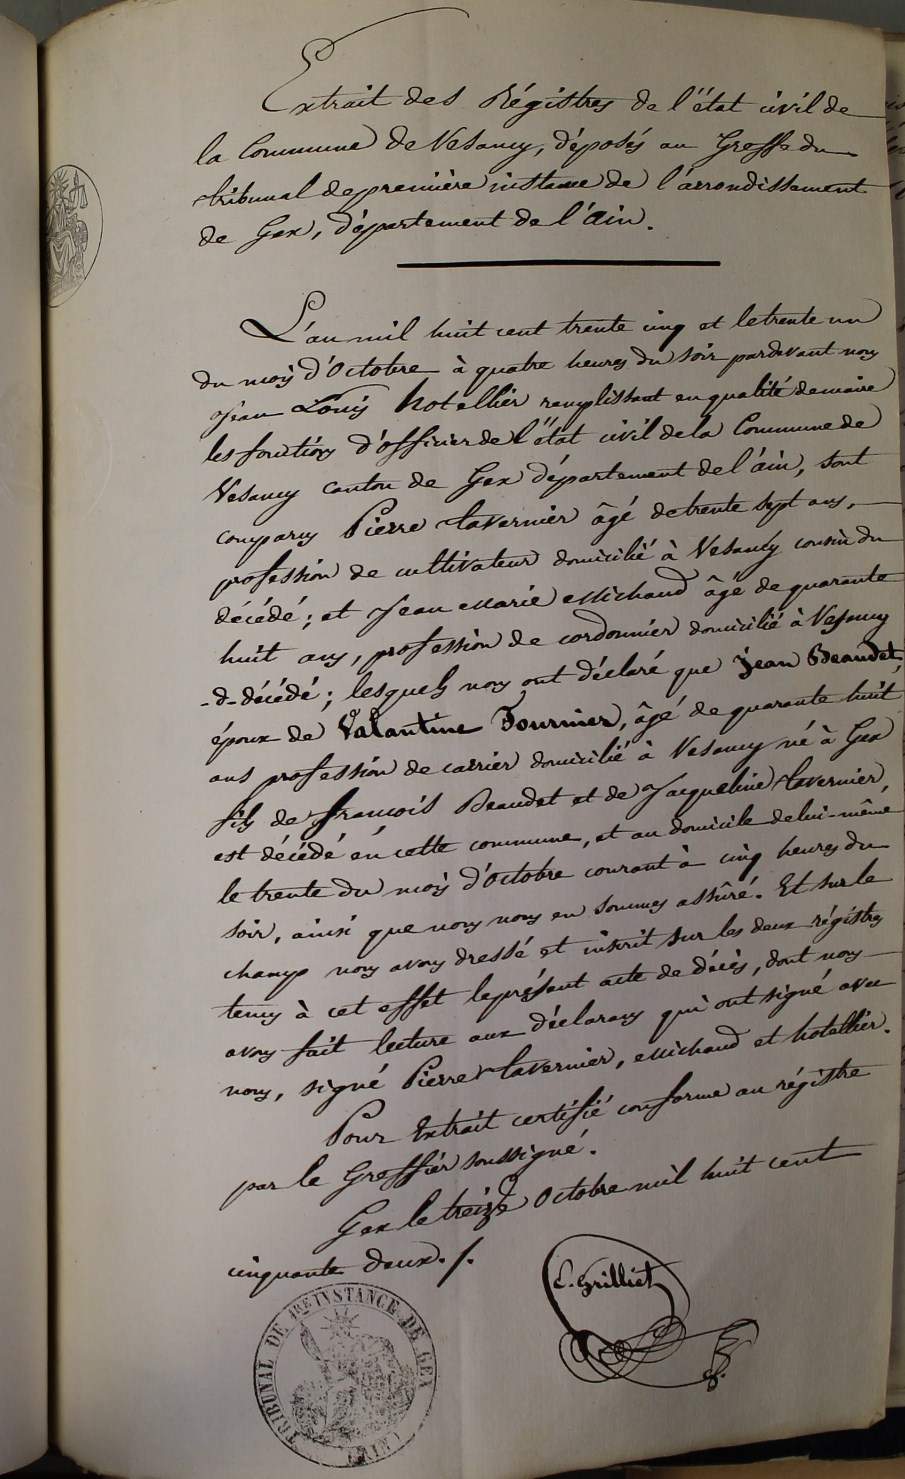 Extrait des Régistres de l'état civil de
la Commune de Vesancy, déposés au Greffe du
tribunal de première instance de l'arrondissement
de Gex, département de l'Ain.
L'an mil huit cent trente cinq et le trente un
du mois d'Octobre à quatre heures du soir pardevant nous
Jean Louis hotellier remplissant en qualité de maire
les fonctions d'officier de l'état civil de la Commune de
Vesancy canton de Gex département de l'ain, sont
comparus Pierre tavernier âgé de trente sept ans,
profession de cultivateur domicilié à Vesancy cousin du
décédé; et Jean Marie Michaud âgé de quarante
huit ans, profession de cordonnier domicilié à Vesancy
-d- décédé; lesquels nous ont déclaré que jean Beaudet,
époux de Valantine Fournier, âgé de quarante huit
ans profession de carrier domicilié à Vesancy né à Gex
fils de françois Beaudet et de Jacqueline tavernier,
est décédé en cette commune, et au domicile de lui-même
le trente du mois d'Octobre courant à cinq heures du
soir, ainsi que nous nous en sommes assûré. Et sur le
champ nous avons dressé et inscrit sur les deux régistres
tenus à cet effet le présent acte de décès, dont nous
avons fait lecture aux déclarans qui ont signé avec
nous, signé Pierre tavernier, Michaud et hotellier.
Pour Extrait certifié conforme au régistre
par le Greffier soussigné.
Gex le treize Octobre mil huit cent
cinquante deux./.
L. Grilliet
TRIBUNAL DE 1RE INSTANCE DE GEX
(AIN)